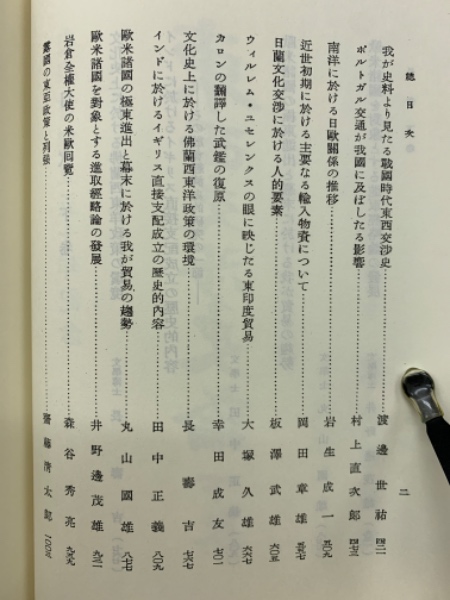 總目次
二
我が史料より見たる戰國時代東西交渉史……渡邊世祐 四二一
ポルトガル交通が我國に及ぼしたる影響……村上直次郎 四七三
南洋に於ける日歐關係の推移……岩生成一 五〇九
近世初期に於ける主要なる輸入物資について……岡田章雄 五五七
日蘭文化交渉に於ける人的要素……板澤武雄 六〇五
ウィルレム・ユセレンクスの眼に映じたる東印度貿易……大塚久雄 六六七
カロンの飜譯した武鑑の復原……幸田成友 七〇一
文化史上に於ける佛蘭西東洋政策の環境……長壽吉 七六七
インドに於けるイギリス直接支配成立の歷史的內容……田中正義 八〇九
歐米諸國の極東進出と幕末に於ける我が貿易の趨勢……丸山國雄 八七七
歐米諸國を對象とする進取經略論の發展……井野邊茂雄 九三一
岩倉全權大使の米歐回覽……森谷秀亮 九六九
露國の東亞政策と列强……齋藤清太郎